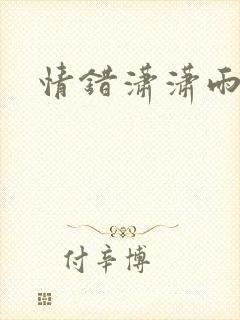 情错潇潇雨
付辛博